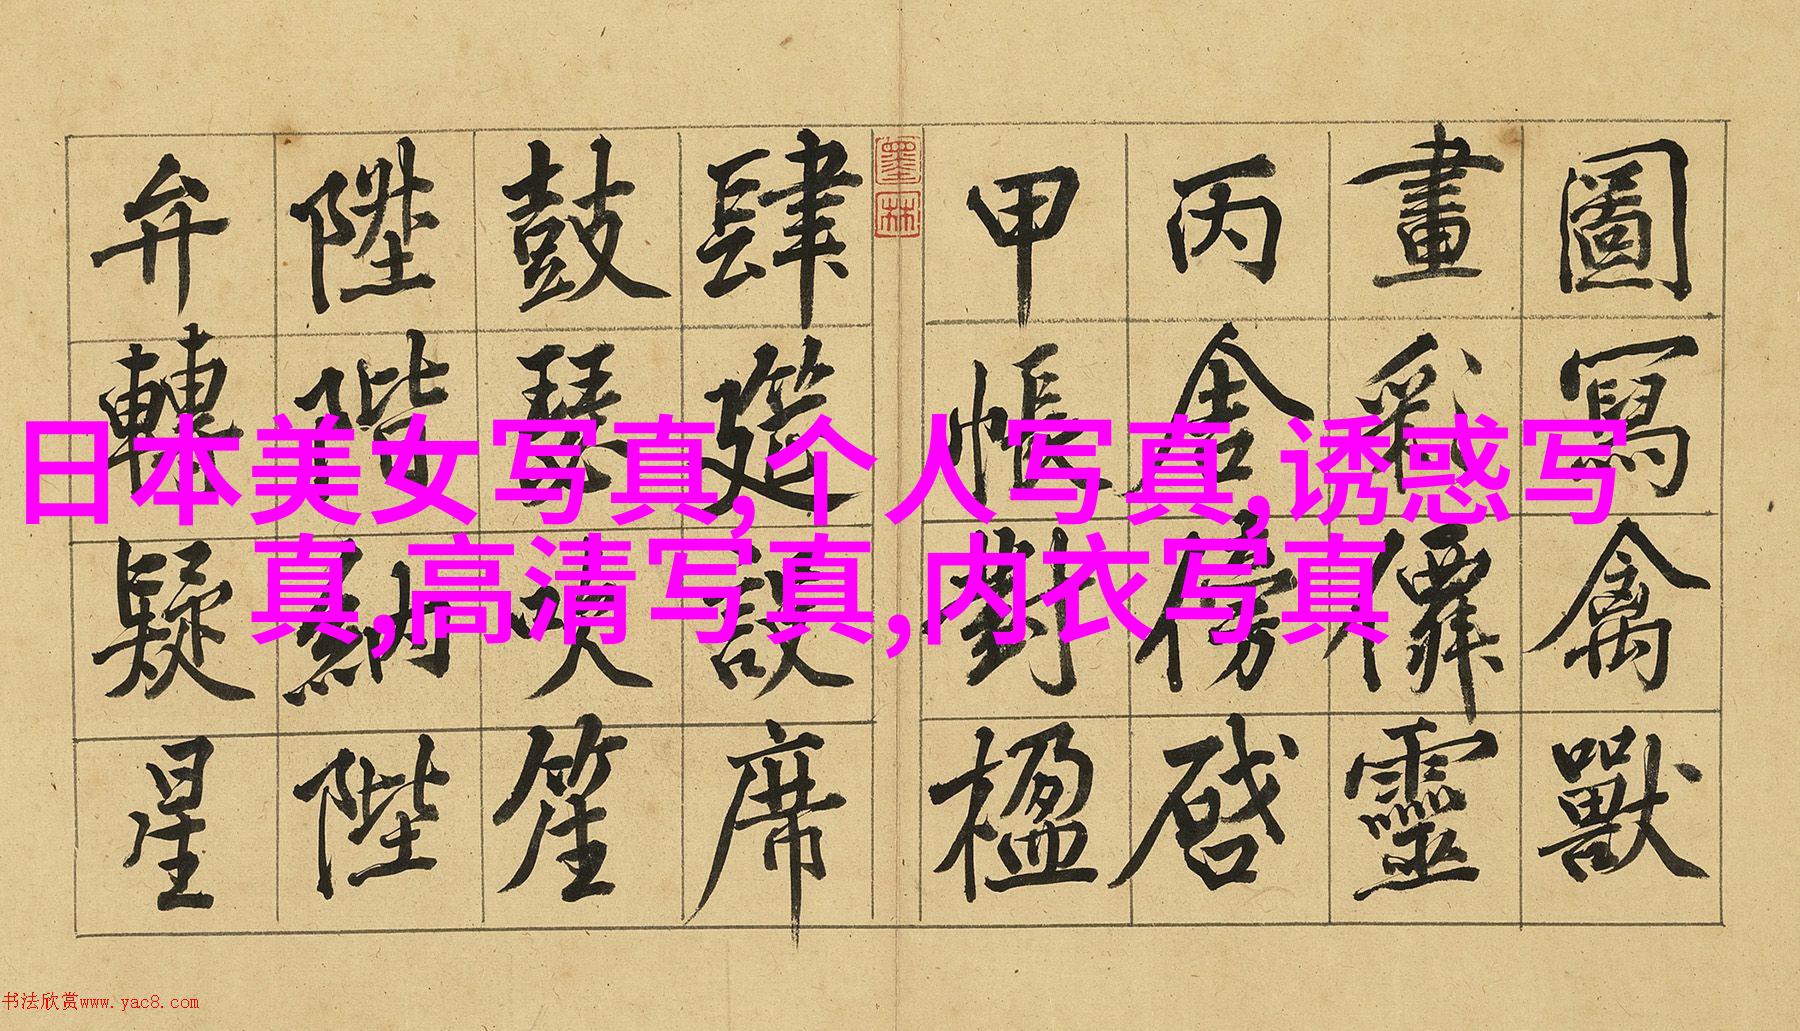 圖寫禽獸
畫彩僊靈
丙舍傍啓
甲帳對楹
肆筵設席
鼓瑟吹笙
陞階納陛
弁轉疑星
墨林
日本美女写真,个人写真,诱惑写
真,高清写真,内衣写真
书法欣赏www.yac8.com